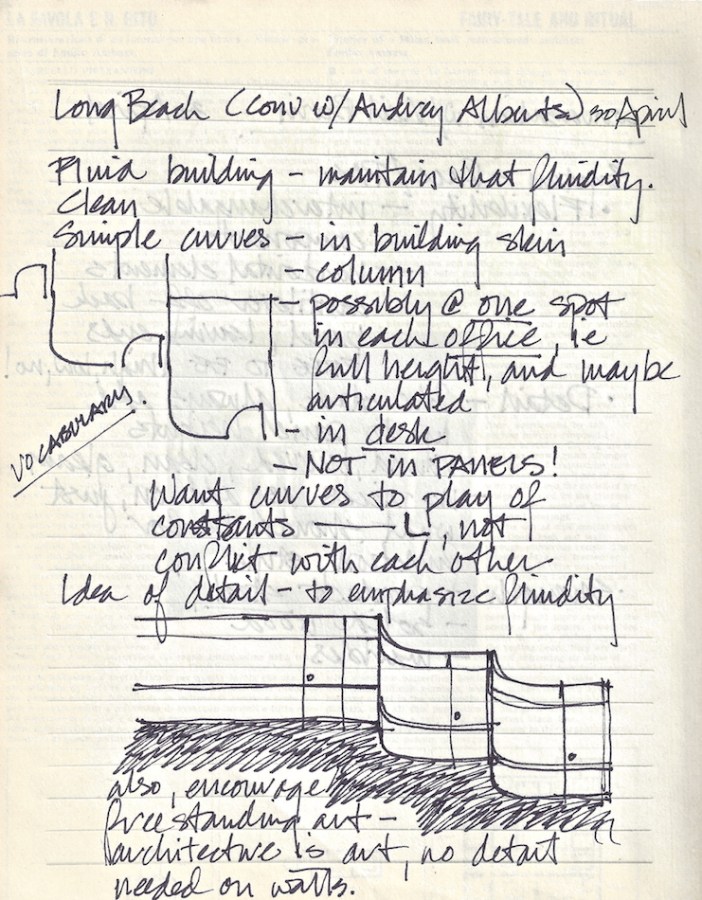 Long Beach (conv w/ Audrey Alberts) 30 April
Fluid building – maintain that fluidity.
Clean
Simple curves – in building skin
– column
– possibly @ one spot
in each office, ie
full height, and maybe
articulated
– in desk
– NOT in PANELS!
VOCABULARY.
Want curves to play of
constants L, not
conflict with each other
Idea of detail – to emphasize fluidity
also, encourage
freestanding art –
architecture is art, no detail
needed on walls.